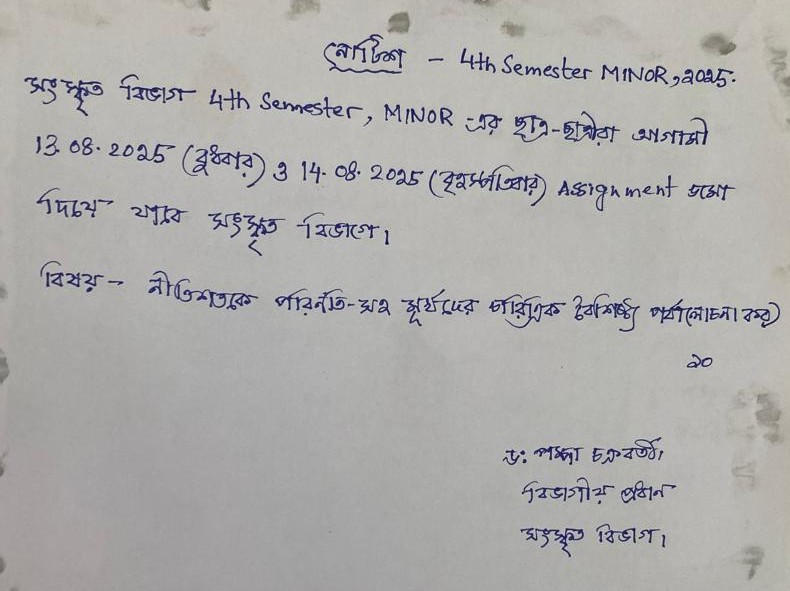 নোটিশ - 4th Semester MINOR, 2025.
সংস্কৃত বিভাগ 4th Semester, MINOR -এর ছাত্র-ছাত্রীরা আগামী
13.08.2025 (বুধবার) ও 14.08.2025 (বৃহস্পতিবার) Assignment জমা
দিয়ে যাবে সংস্কৃত বিভাগে।
বিষয় - নীতিশতকে পরিনতি-সহ মূর্খদের চারিত্রিক বৈশিষ্ট্য পর্যালোচনা কর)
২০
ড: চক্রবর্তী।
বিভাগীয় প্রধান
সংস্কৃত বিভাগ।